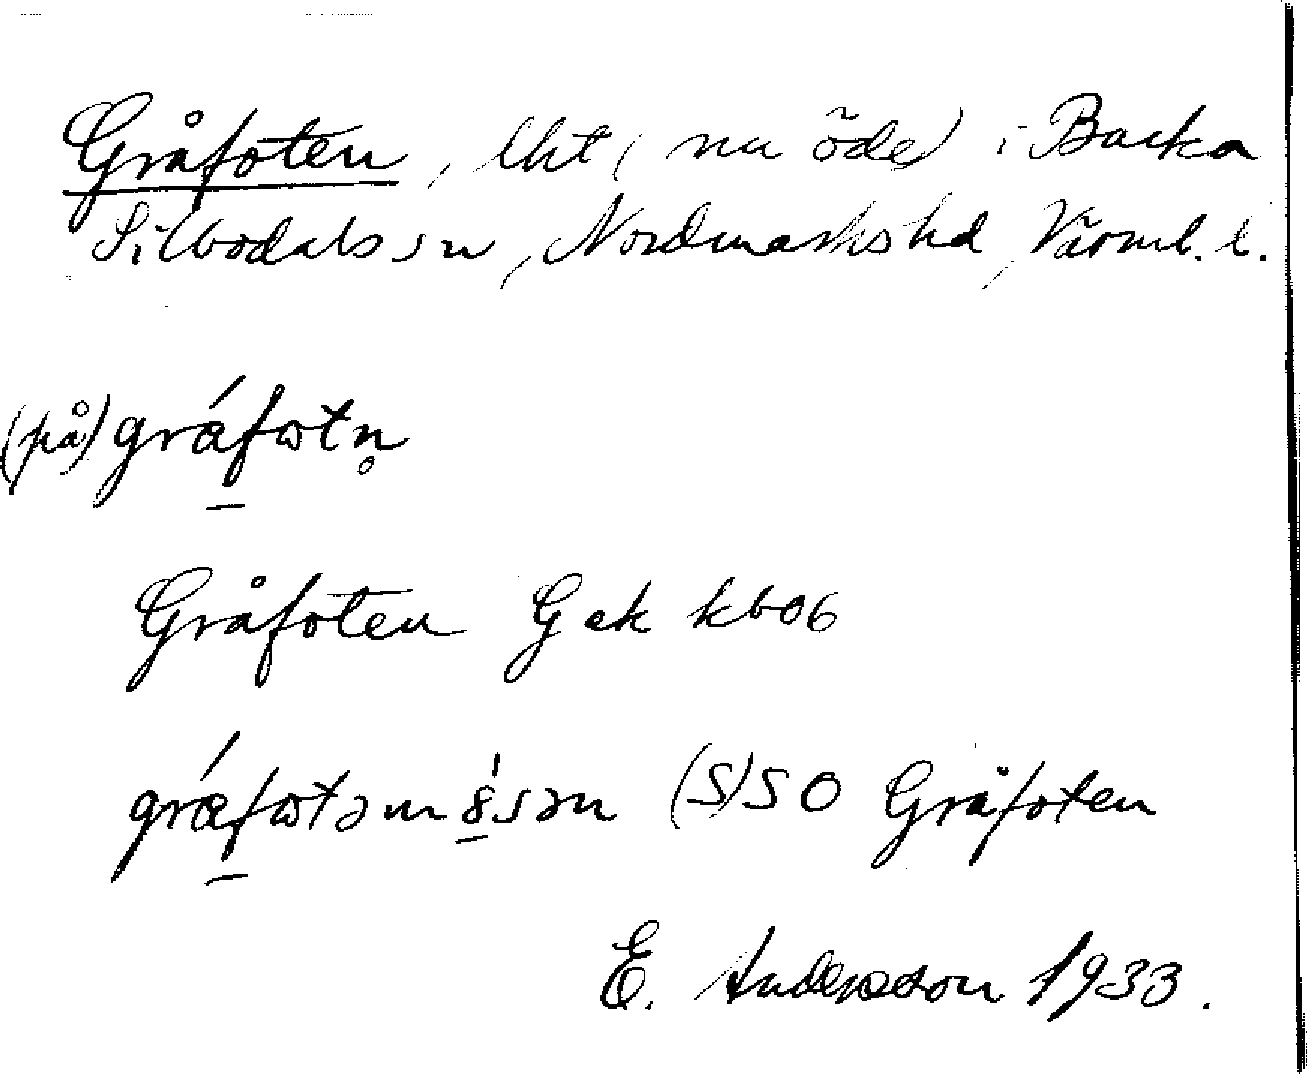 Gråfoten, lht (nu öde) i Backa
Silbodals sn, Nordmarks hd, Värml. l.
(på) grǽfωtn̥
Gråfoten Gek kb06
(S)SO Gråfoten
E. Andersson 1933.